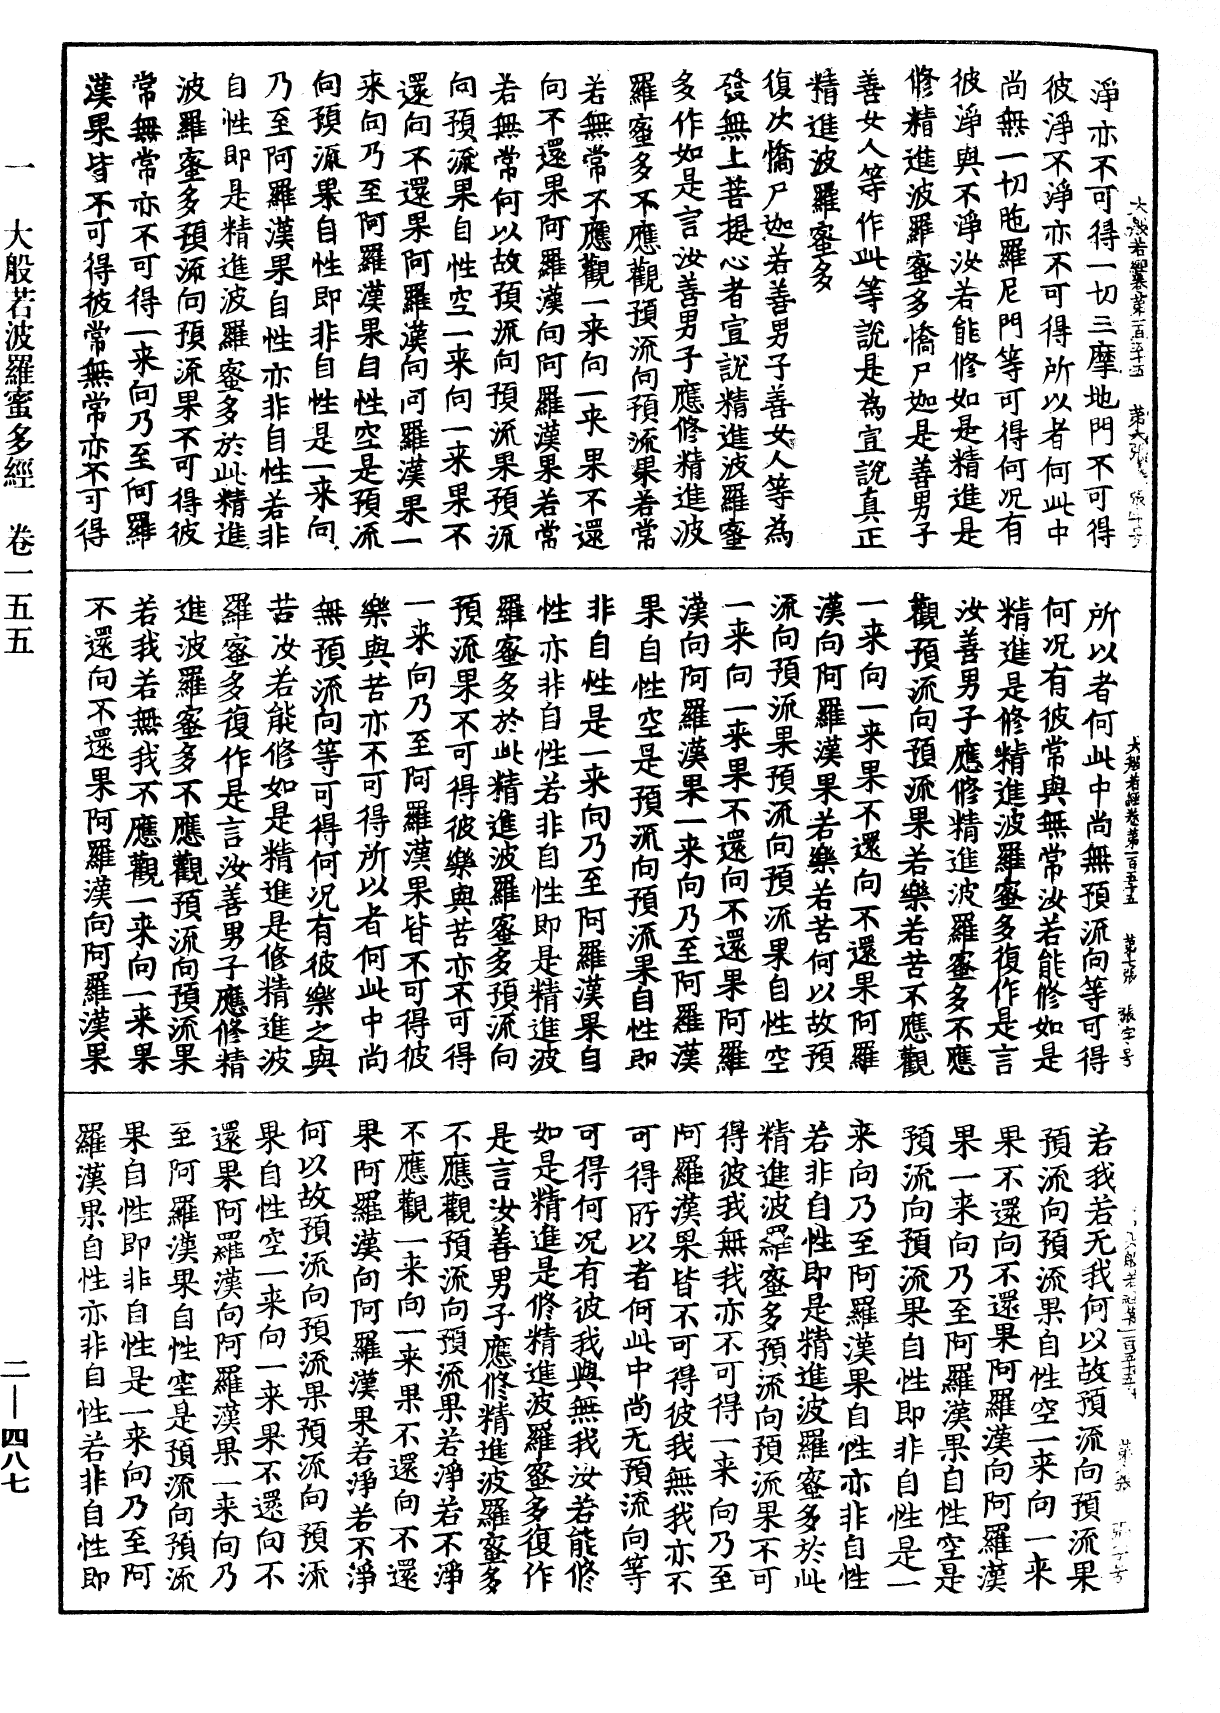 大般若經卷第一百五十五 第六張 張字号
淨亦不可得一切三摩地門不可得
彼淨不淨亦不可得所以者何此中
尚無一切陁羅尼門等可得何况有
彼淨與不淨汝若能修如是精進是
修精進波羅蜜多憍尸迦是善男子
善女人等作此等說是為宣說真正
精進波羅蜜多
復次憍尸迦若善男子善女人等為
發無上菩提心者宣說精進波羅蜜
多作如是言汝善男子應修精進波
羅蜜多不應觀預流向預流果若常
若無常不應觀一来向一来果不還
向不還果阿羅漢向阿羅漢果若常
若無常何以故預流向預流果預流
向預流果自性空一来向一来果不
還向不還果阿羅漢向阿羅漢果一
来向乃至阿羅漢果自性空是預流
向預流果自性即非自性是一来向
乃至阿羅漢果自性亦非自性若非
自性即是精進波羅蜜多於此精進
波羅蜜多預流向預流果不可得彼
常無常亦不可得一来向乃至阿羅
漢果皆不可得彼常無常亦不可得
大般若經卷第一百五十五 第七張 張字号
所以者何此中尚無預流向等可得
何况有彼常與無常汝若能修如是
精進是修精進波羅蜜多復作是言
汝善男子應修精進波羅蜜多不應
觀預流向預流果若樂若苦不應觀
一来向一来果不還向不還果阿羅
漢向阿羅漢果若樂若苦何以故預
流向預流果預流向預流果自性空
一来向一来果不還向不還果阿羅
漢向阿羅漢果一来向乃至阿羅漢
果自性空是預流向預流果自性即
非自性是一来向乃至阿羅漢果自
性亦非自性若非自性即是精進波
羅蜜多於此精進波羅蜜多預流向
預流果不可得彼樂與苦亦不可得
一来向乃至阿羅漢果皆不可得彼
樂與苦亦不可得所以者何此中尚
無預流向等可得何况有彼樂之與
苦汝若能修如是精進是修精進波
羅蜜多復作是言汝善男子應修精
進波羅蜜多不應觀預流向預流果
若我若無我不應觀一来向一来果
不還向不還果阿羅漢向阿羅漢果
般若經第一百五十五 第八張 張字号
若我若无我何以故預流向預流果
預流向預流果自性空一来向一来
果不還向不還果阿羅漢向阿羅漢
果一来向乃至阿羅漢果自性空是
預流向預流果自性即非自性是一
来向乃至阿羅漢果自性亦非自性
若非自性即是精進波羅蜜多於此
精進波羅蜜多預流向預流果不可
得彼我無我亦不可得一来向乃至
阿羅漢果皆不可得彼我無我亦不
可得所以者何此中尚无預流向等
可得何况有彼我與無我汝若能修
如是精進是修精進波羅蜜多復作
是言汝善男子應修精進波羅蜜多
不應觀預流向預流果若淨若不淨
不應觀一来向一来果不還向不還
果阿羅漢向阿羅漢果若淨若不淨
何以故預流向預流果預流向預流
果自性空一来向一来果不還向不
還果阿羅漢向阿羅漢果一来向乃
至阿羅漢果自性空是預流向預流
果自性即非自性是一来向乃至阿
羅漢果自性亦非自性若非自性即
一 大般若波羅蜜多經 卷一五五
二—四八七